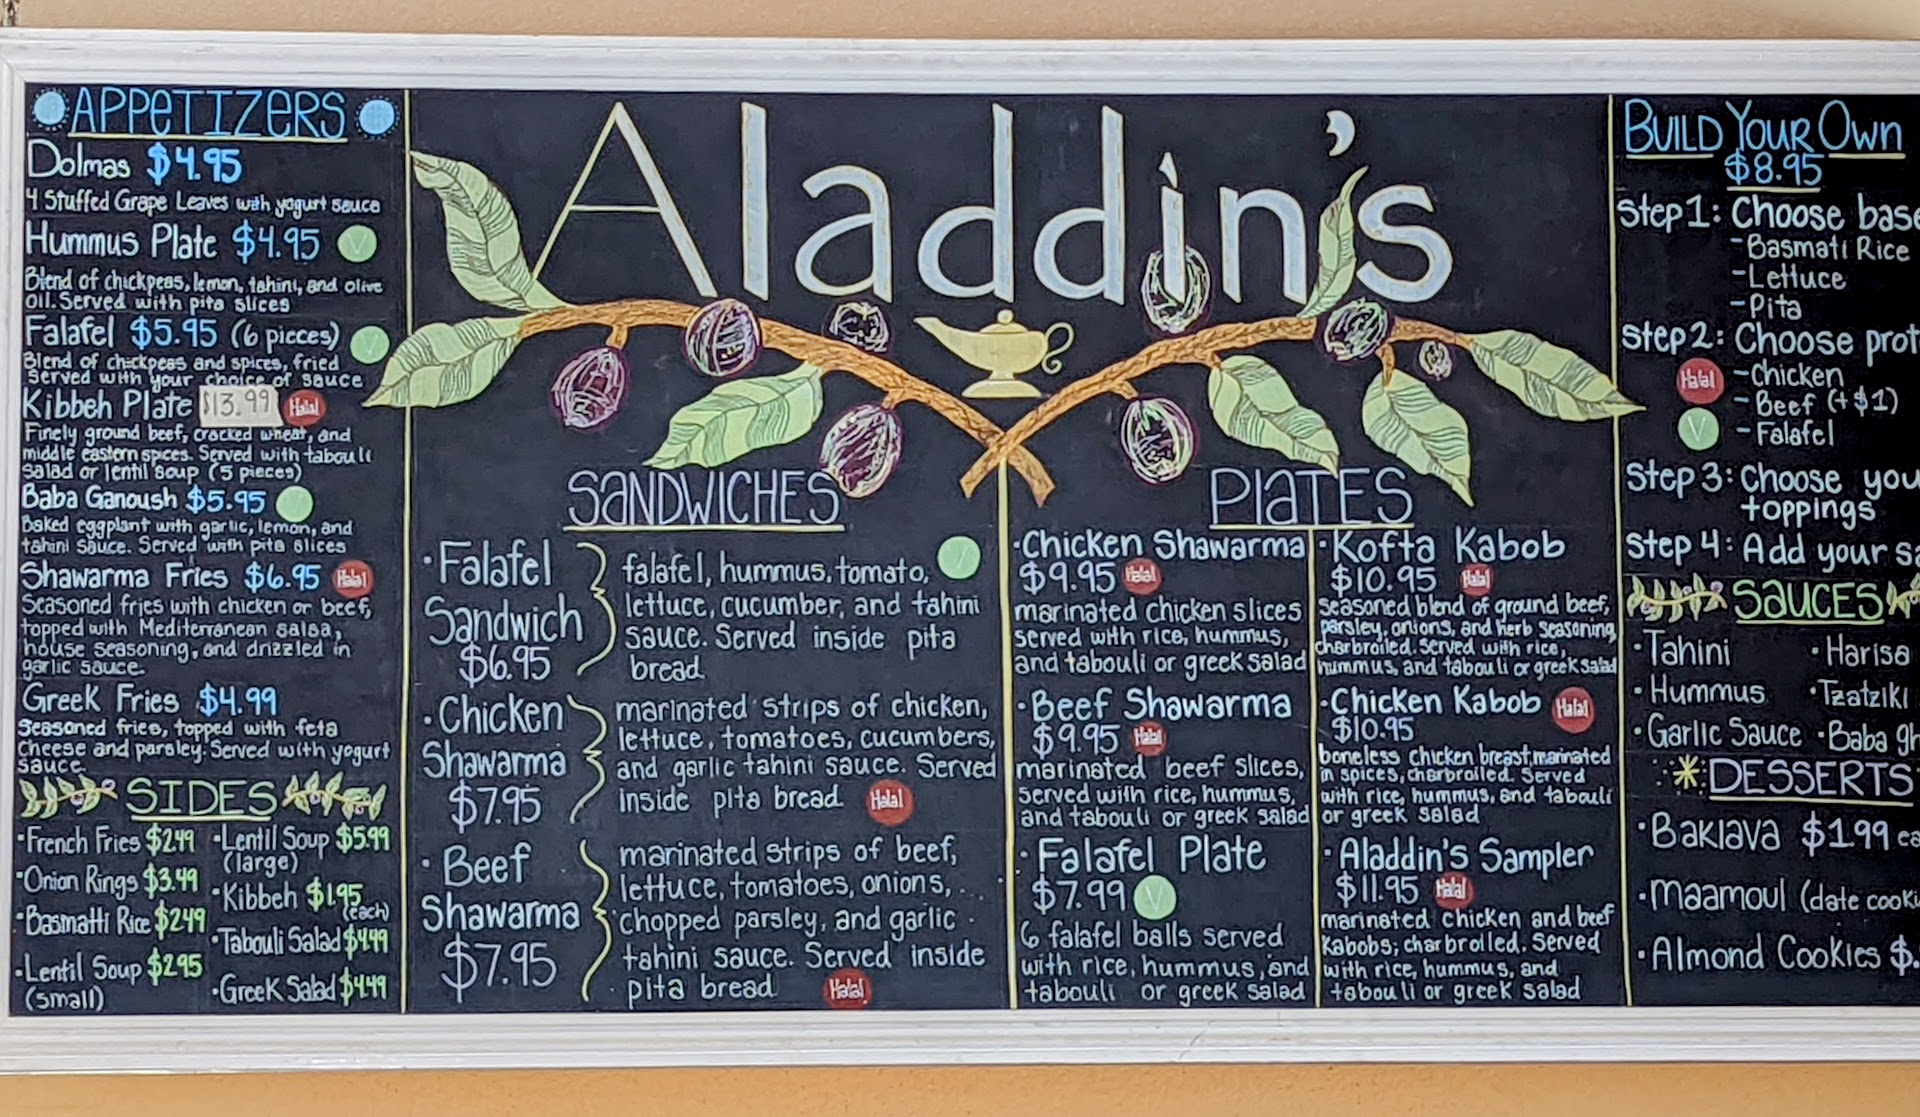 Aladdin's
APPETIZERS
Dolmas $4.95
4 Stuffed Grape Leaves with yogurt sauce
Hummus Plate $4.95 V
Blend of chickpeas, lemon, tahini, and olive
oil. Served with pita slices
Falafel $5.95 (6 pieces) V
Blend of chickpeas and spices, fried
Served with your choice of sauce
Kibbeh Plate $13.99 Halal
Finely ground beef, cracked wheat, and
middle eastern spices. Served with tabouli
salad or lentil soup (5 pieces)
Baba Ganoush $5.95 V
Baked eggplant with garlic, lemon, and
tahini sauce. Served with pita slices
Shawarma Fries $6.95 Halal
Seasoned fries with chicken or beef,
topped with Mediterranean salsa,
house seasoning, and drizzled in
garlic sauce.
Greek Fries $4.99
Seasoned fries, topped with feta
cheese and parsley. Served with yogurt
sauce.
SIDES
·French Fries $2.49
·Onion Rings $3.49
·Basmatti Rice $2.49
·Lentil Soup $2.95
(small)
·Lentil Soup $5.99
(large)
·Kibbeh $1.95
(each)
·Tabouli Salad $4.49
·Greek Salad $4.49
SANDWICHES
·Falafel
Sandwich
$6.95
falafel, hummus, tomato, V
lettuce, cucumber, and tahini
sauce. Served inside pita
bread
·Chicken
Shawarma
$7.95
marinated strips of chicken,
lettuce, tomatoes, cucumbers,
and garlic tahini sauce. Served
inside pita bread Halal
·Beef
Shawarma
$7.95
marinated strips of beef,
lettuce, tomatoes, onions,
chopped parsley, and garlic
tahini sauce. Served inside
pita bread Halal
PLATES
·Chicken Shawarma
$9.95 Halal
marinated chicken slices
served with rice, hummus,
and tabouli or greek salad
·Beef Shawarma
$9.95 Halal
marinated beef slices,
served with rice, hummus,
and tabouli or greek salad
·Falafel Plate
$7.99 V
6 falafel balls served
with rice, hummus, and
tabouli or greek salad
·Kofta Kabob
$10.95 Halal
seasoned blend of ground beef,
parsley, onions, and herb seasoning,
charbroiled. Served with rice,
hummus, and tabouli or greek salad
·Chicken Kabob Halal
$10.95
boneless chicken breast, marinated
in spices, charbroiled. Served
with rice, hummus, and tabouli
or greek salad
·Aladdin's Sampler
$11.95 Halal
marinated chicken and beef
kabobs; charbroiled. Served
with rice, hummus, and
tabouli or greek salad
BUILD YOUR OWN
$8.95
Step 1: Choose base
-Basmati Rice
-Lettuce
-Pita
Step 2: Choose prot
Halal -Chicken
-Beef (+$1)
V -Falafel
Step 3: Choose you
toppings
Step 4: Add your sa
SAUCES
·Tahini
·Hummus
·Garlic Sauce
·Harisa
·Tzatziki
·Baba gh
DESSERTS
·Baklava $1.99 ea
·Maamoul (date cooki
·Almond Cookies $.